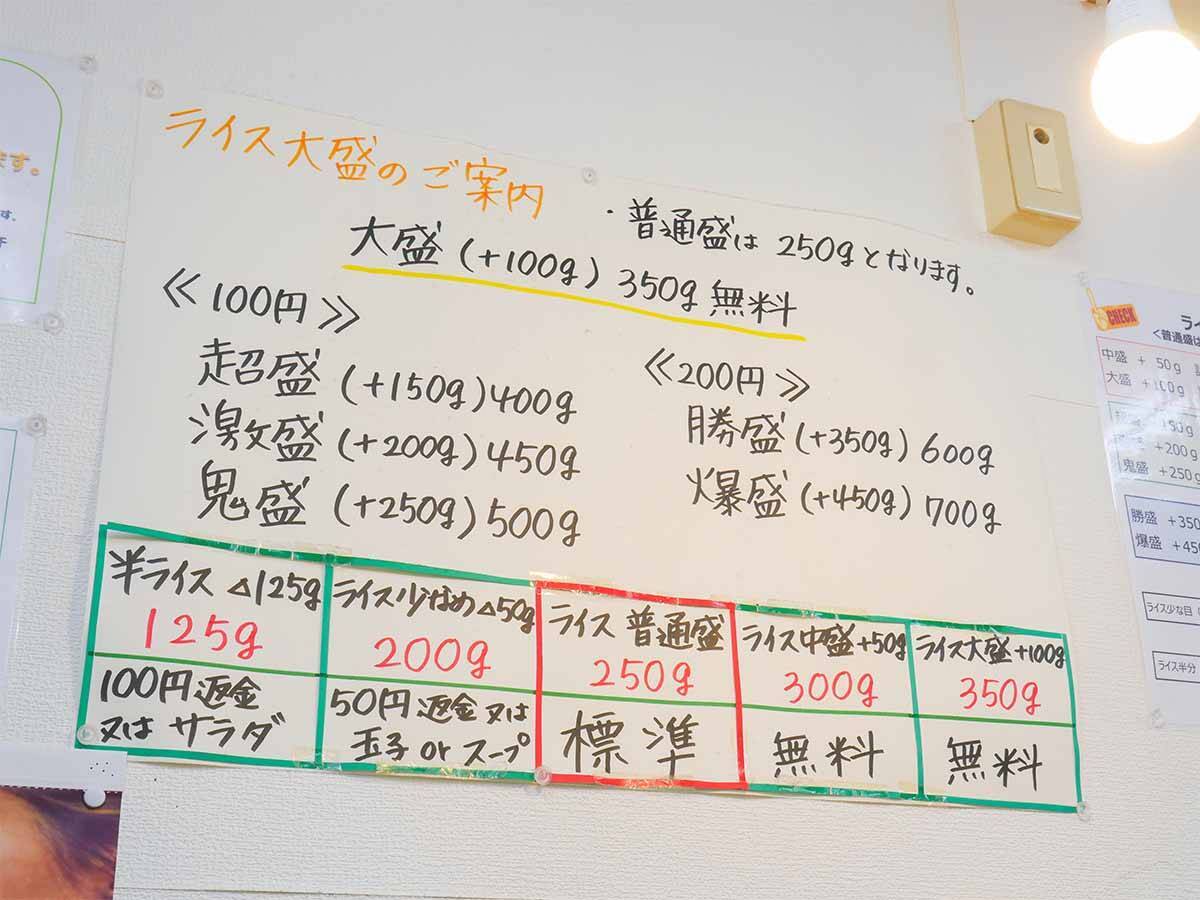 ライス大盛のご案内
・普通盛は 250gとなります。
大盛(+100g) 350g 無料
≪100円≫
超盛(+150g)400g
激盛(+200g)450g
鬼盛(+250g)500g
≪200円≫
勝盛(+350g)600g
爆盛(+450g)700g
半ライス △125g
125g
100円返金
又は サラダ
ライス少なめ△50g
200g
50円返金又は
玉子orスープ
ライス 普通盛
250g
標準
ライス中盛+50g
300g
無料
ライス大盛+100g
350g
無料
ます。
す。
CHECK
ライ
<普通盛は
中盛 + 50g
大盛 +100g
+200g
鬼盛 +250g
勝盛 +350
爆盛 +45
ライス少な目
ライス半分